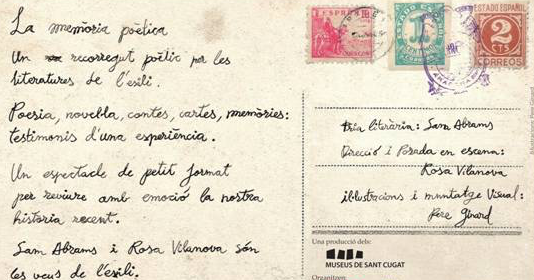 La memòria poètica
Un recorregut poètic per les
literatures de l'exili.
Poesia, novel·la, contes, cartes, memòries:
testimonis d'una experiència.
Un espectacle de petit format
per reviure amb emoció la nostra
història recent.
Sam Abrams i Rosa Vilanova són
les veus de l'exili.
ESTADO ESPAÑOL
2
CTS
CORREOS
1
Tria literària: Sam Abrams
Direcció i Posada en escena:
Rosa Vilanova
il·lustracions i muntatge Visual:
Pere Ginard
Una producció dels:
MUSEUS DE SANT CUGAT
Organitzen: